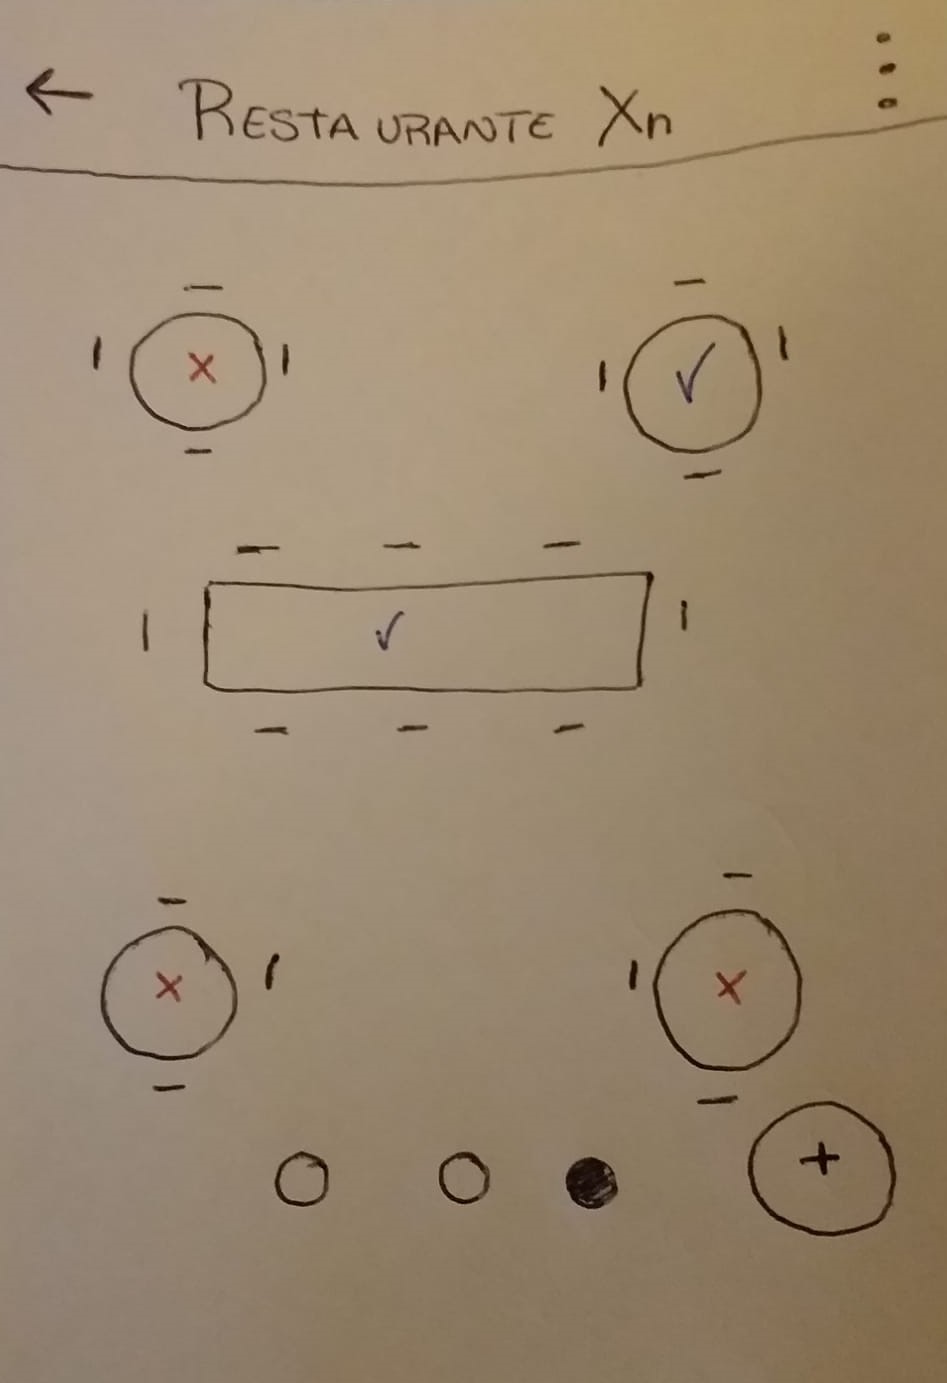 ← RESTAURANTE Xn
x ✓
✓
x x
+